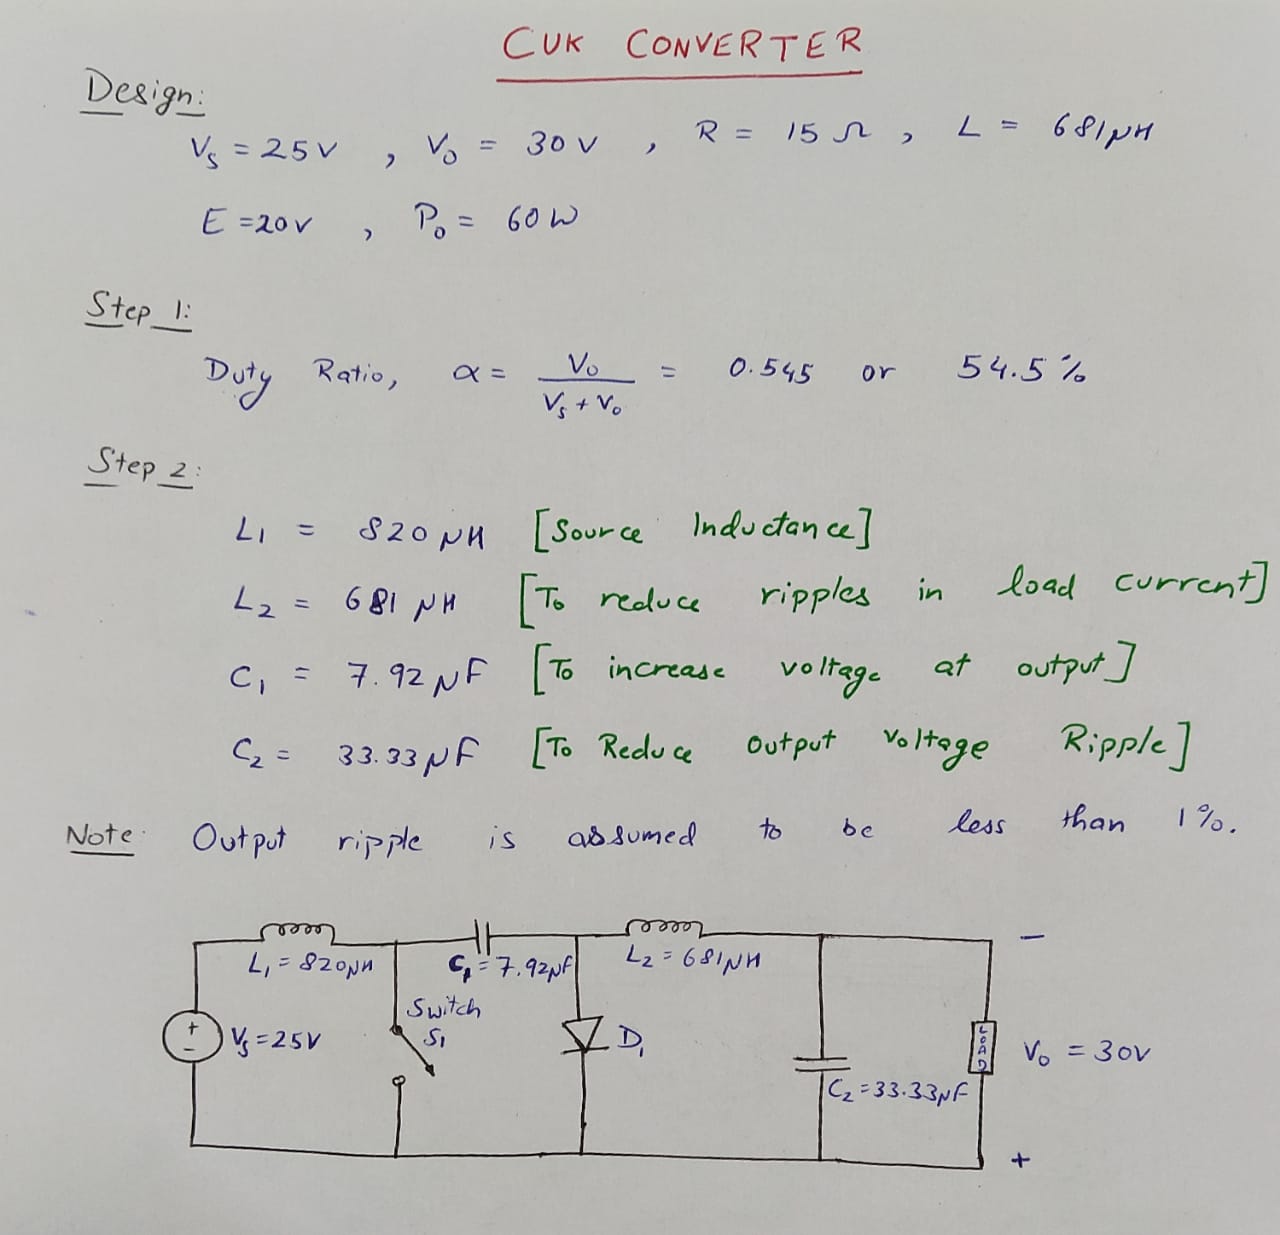 CUK CONVERTER
Design:
Vs = 25V , Vo = 30V , R = 15 Ω , L = 681μH
E = 20V , Po = 60W
Step 1:
Duty Ratio, α = Vo / Vs + Vo = 0.545 or 54.5%
Step 2:
L1 = 820μH [Source Inductance]
L2 = 681μH [To reduce ripples in load current]
C1 = 7.92μF [To increase voltage at output]
C2 = 33.33μF [To Reduce output voltage Ripple]
Note: Output ripple is assumed to be less than 1%.
L1 = 820μH
C1 = 7.92μF
L2 = 681μH
−
Switch
S1
+
−
Vs = 25V
D1
LOAD
Vo = 30V
C2 = 33.33μF
+